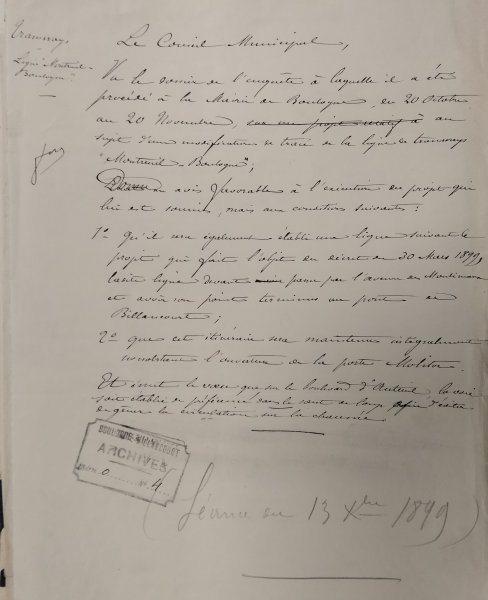 Tramway.
Ligne Montreuil-
Boulogne
Le Conseil Municipal,
Vu le dossier de l'enquête à laquelle il a été
procédé à la Mairie de Boulogne, du 20 Octobre
au 20 Novembre, sur un projet relatif à au
sujet d'une modification de tracé de la ligne de tramways
"Montreuil-Boulogne";
Donne un avis favorable à l'exécution du projet qui
lui est soumis, mais aux conditions suivantes :
1° Qu'il sera également établi une ligne suivant le
projet qui fait l'objet du décret du 30 Mars 1899,
ladite ligne devant passer par l'avenue des Moulineaux
et avoir son point terminus au pont de
Billancourt ;
2° que cet itinéraire sera maintenu intégralement
nonobstant l'ouverture de la porte Molitor.
Et émet le vœu que sur le boulevard d'Auteuil, la voie
soit établie de préférence dans le sens de long afin d'éviter
de gêner la circulation sur la chaussée.
BOULOGNE-BILLANCOURT
ARCHIVES
O N° 4
(Séance du 13 Xbre 1899)